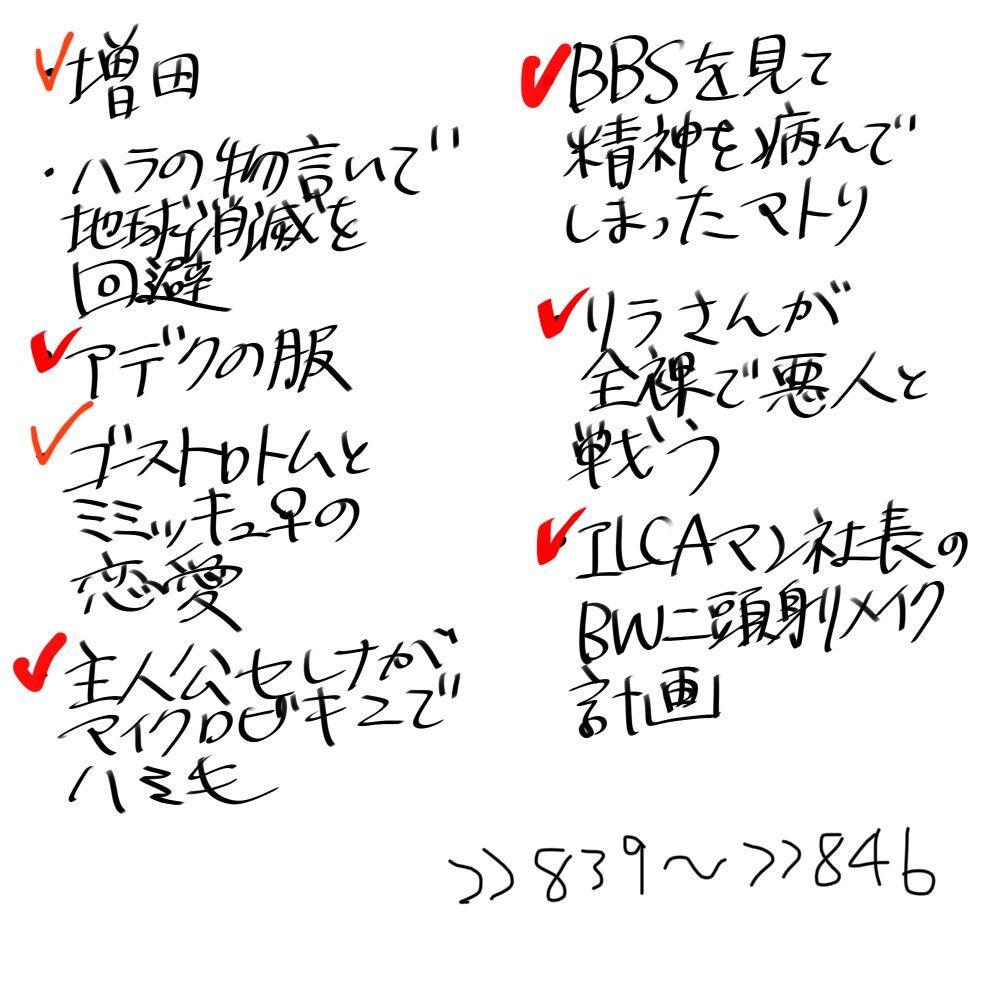 ・増田
・ハラの物言いで
地球消滅を
回避
・アデクの服
・ゴーストロトムと
ミミッキュ♀の
恋愛
・主人公セレナが
マイクロビキニで
ハミ毛
・BBSを見て
精神を病んで
しまったマトリ
・リラさんが
全裸で悪人と
戦う
・ILCAマン社長の
BW二頭身リメイク
計画
>>839～>>846